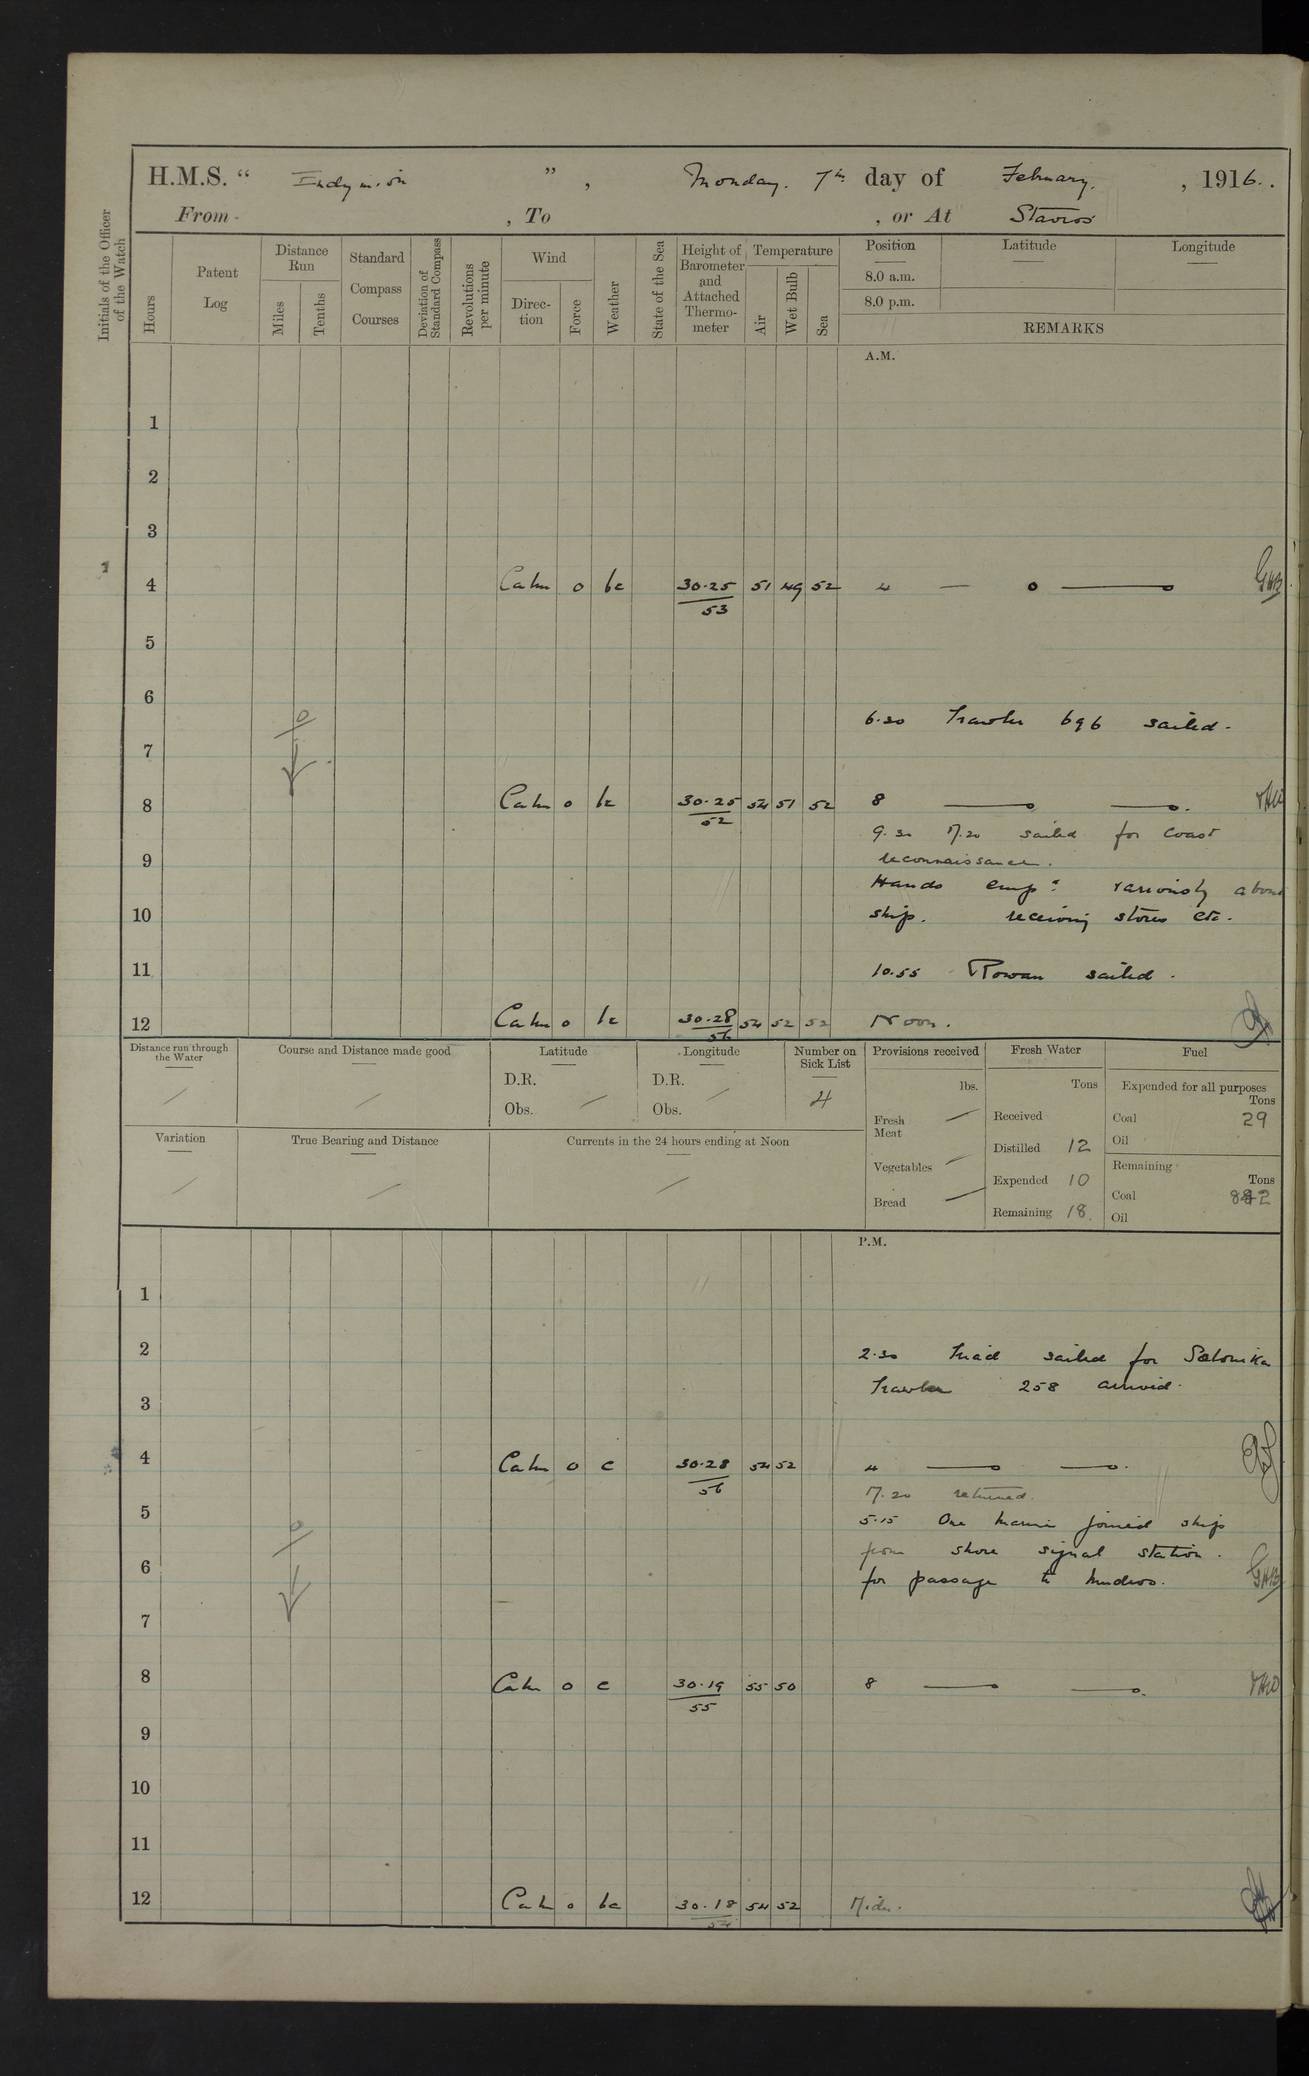 H.M.S. “ Endymion ” , Monday. 7th day of February. , 1916.
From , To , or At Stavros
Initials of the Officer of the Watch
Hours
Patent Log
Distance Run
Miles
Tenths
Standard Compass Courses
Deviation of Standard Compass
Revolutions per minute
Wind
Direc- tion
Force
Weather
State of the Sea
Height of Barometer and Attached Thermo- meter
Temperature
Air
Wet Bulb
Sea
Position
Latitude
Longitude
8.0 a.m.
8.0 p.m.
REMARKS
A.M.
1
2
3
4 Calm o bc 30.25 51 49 52 4 GHB
53
5
6
6.30 Trawler 696 sailed.
7
8 Calm o bc 30.25 54 51 52 8
52
9.30 M.20 sailed for coast
9 reconnaissance.
Hands emp d variously about
10 ship. receiving stores etc.
11 10.55 Rowan sailed.
12 Calm o bc 30.28 54 52 52 Noon.
56
Distance run through the Water
Course and Distance made good
Latitude
D.R.
Obs.
Longitude
D.R.
Obs.
Number on Sick List
4
Provisions received
lbs.
Fresh Meat
Vegetables
Bread
Fresh Water
Tons
Received
Distilled 12
Expended 10
Remaining 18
Fuel
Expended for all purposes
Tons
Coal 29
Oil
Remaining
Tons
Coal 882
Oil
Variation
True Bearing and Distance
Currents in the 24 hours ending at Noon
P.M.
1
2 2.30 Triad sailed for Salonika
Trawler 258 arrived.
3
4 Calm o c 30.28 54 52 4
56
M.20 returned.
5 5.15 One marine joined ship
from shore signal station.
6 for passage to Mudros. GHB
7
8 Calm o c 30.19 55 50 8
55
9
10
11
12 Calm o bc 30.18 54 52 Midn.
54